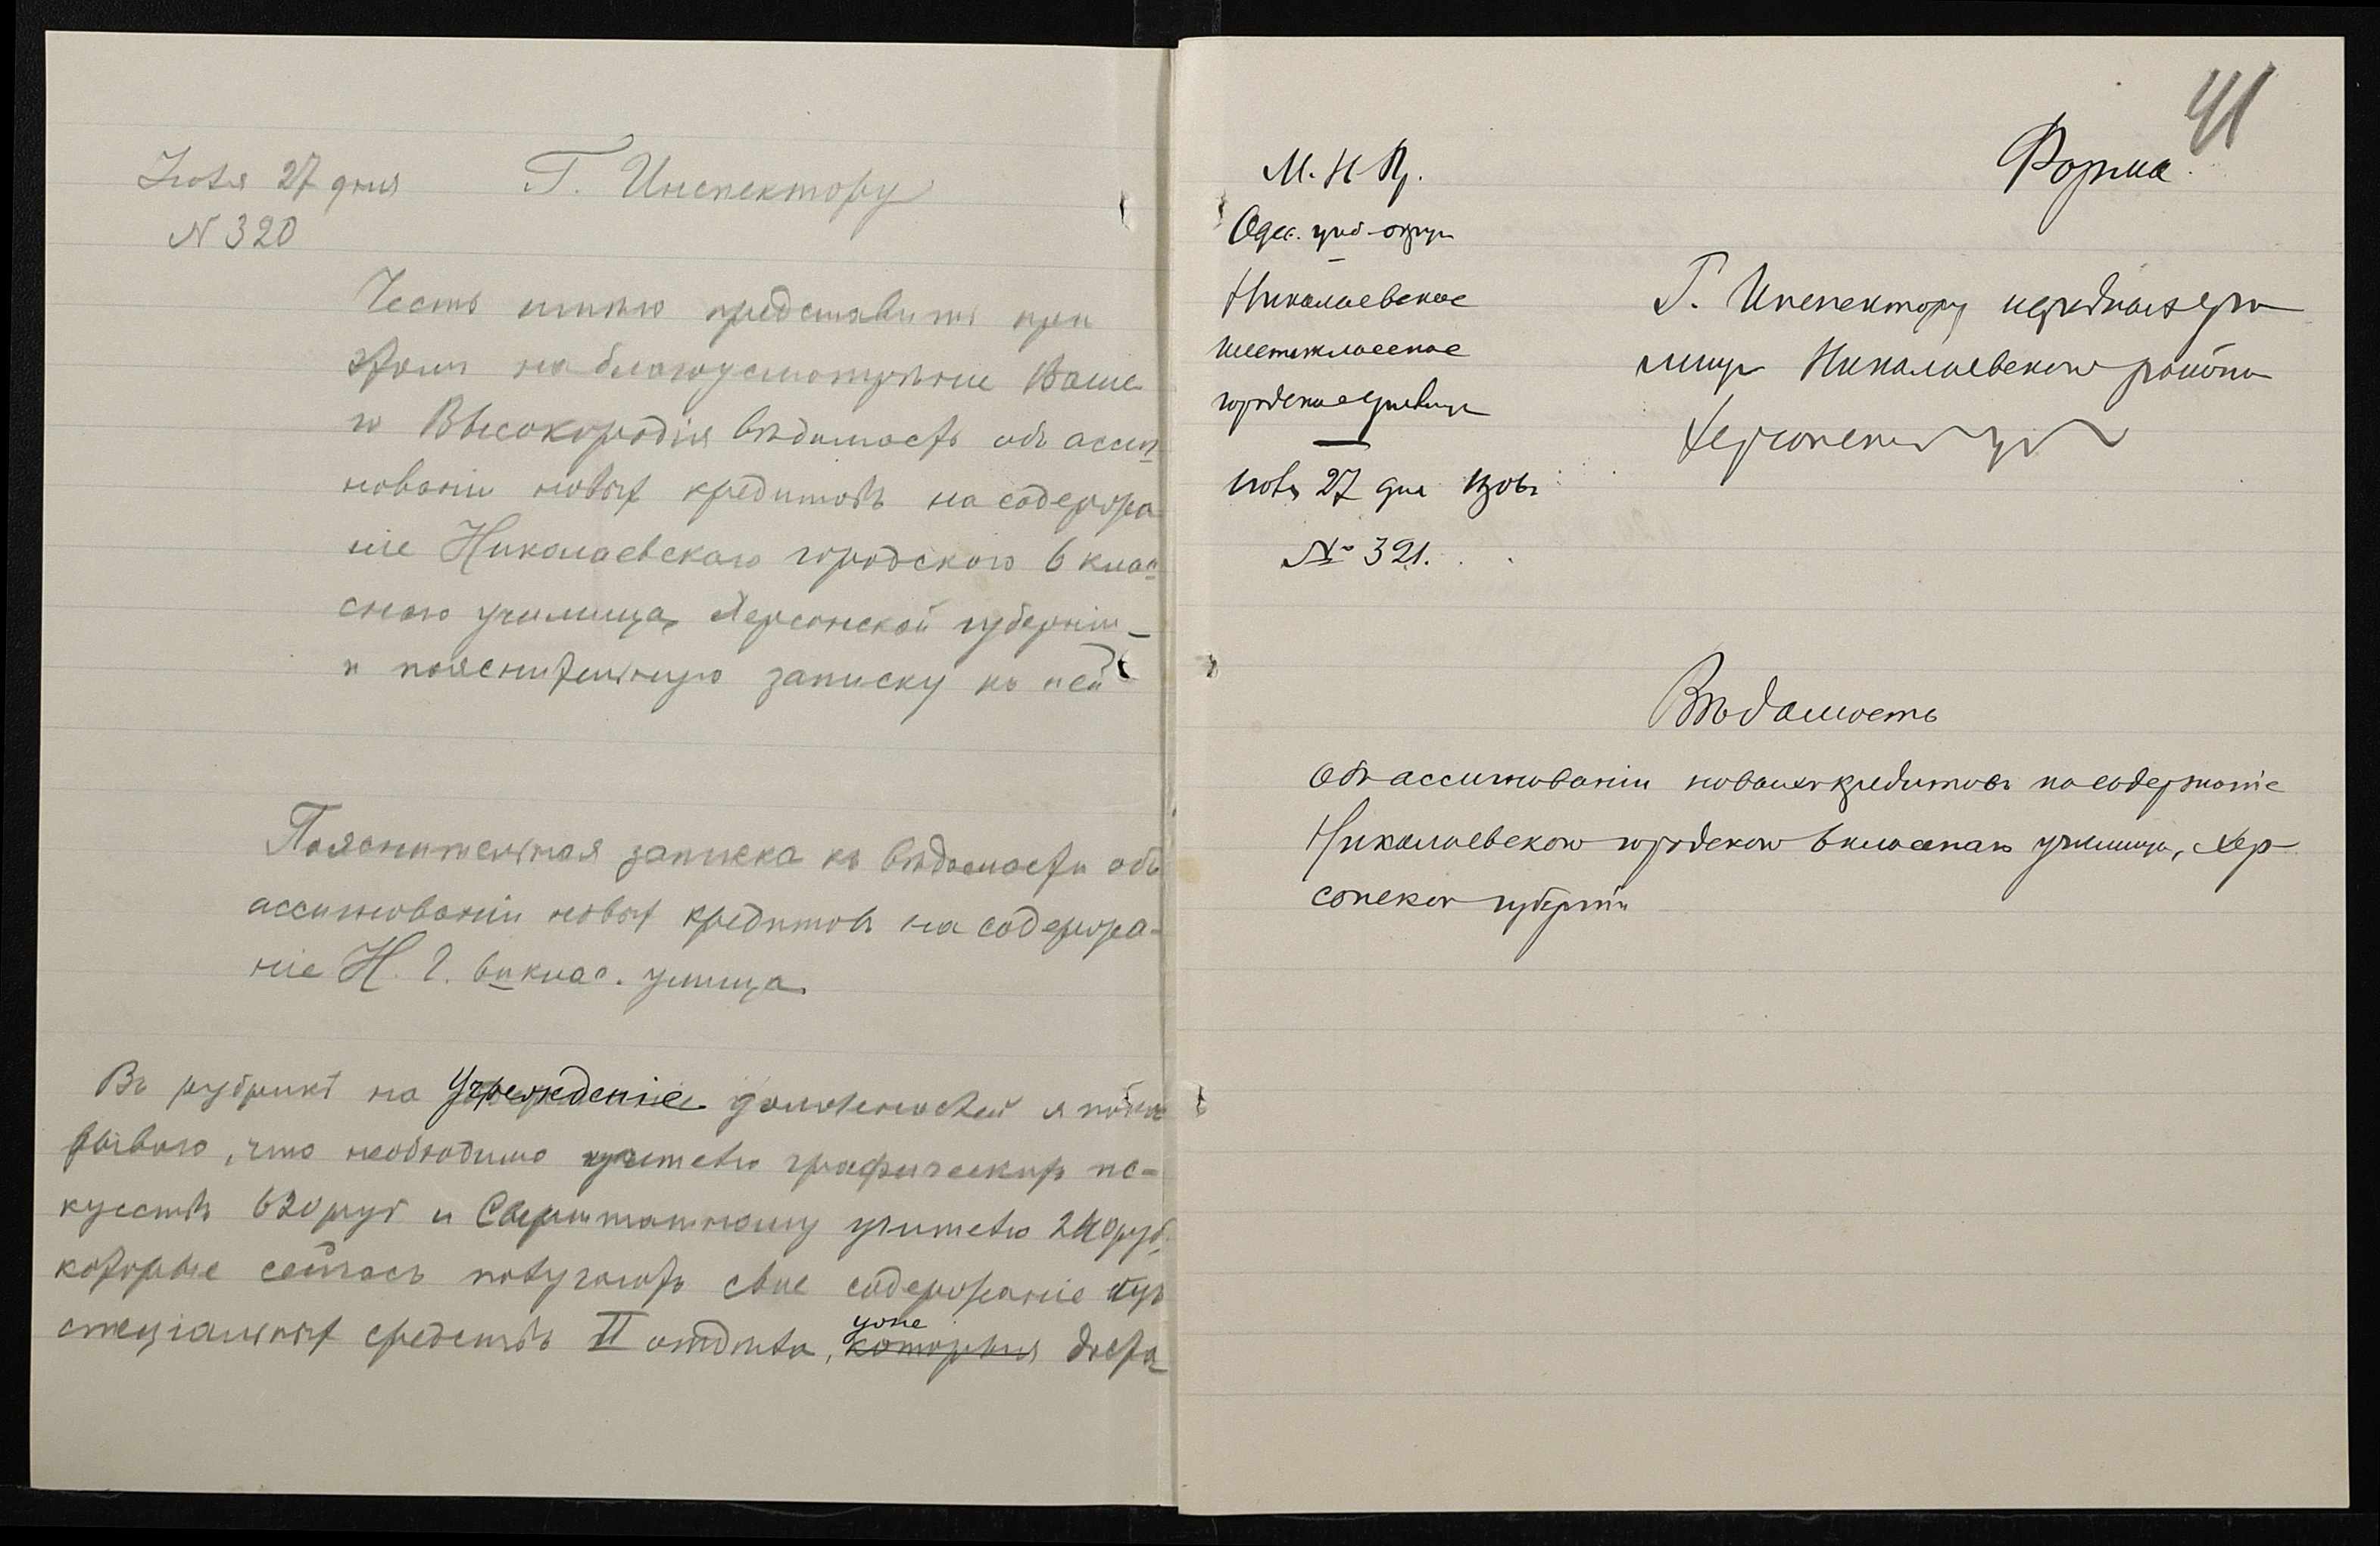 Іюля 27 дня
N 320
Г. Инспектору
Честь имѣю представить при
этомъ на благоусмотрѣніе Ваше
го Высокородія вѣдомость объ ассиг
нованіи новыхъ кредитовъ на содержа
ніе Николаевскаго городского 6 клас
снаго училища, Херсонской губерніи
и пояснительную записку къ ней
Пояснительная записка къ вѣдомости объ
ассигнованіи новыхъ кредитовъ на содержа-
ніе Н. Г. 6и клас. училища.
Въ рубрикѣ на Учрежденіе должностей я пока
зываю, что необходимо учителю графическихъ ис-
кусствъ 620 руб и Сверхштатному учителю 240 руб,
которые сейчасъ получаютъ свое содержаніе изъ
спеціальныхъ средствъ II отдѣла, которыя уже доста
41
Форма.
М. Н. Пр.
Одес. учеб. округъ
Николаевское
шестиклассное
городское училище
Іюля 27 дня
№ 321.
Г. Инспектору народныхъ учи
лищъ Николаевскаго района
Херсонской губ
Вѣдомость
Объ ассигнованіи новыхъ кредитовъ на содержаніе
Николаевскаго городского 6 класснаго училища, Хер
сонской губерніи